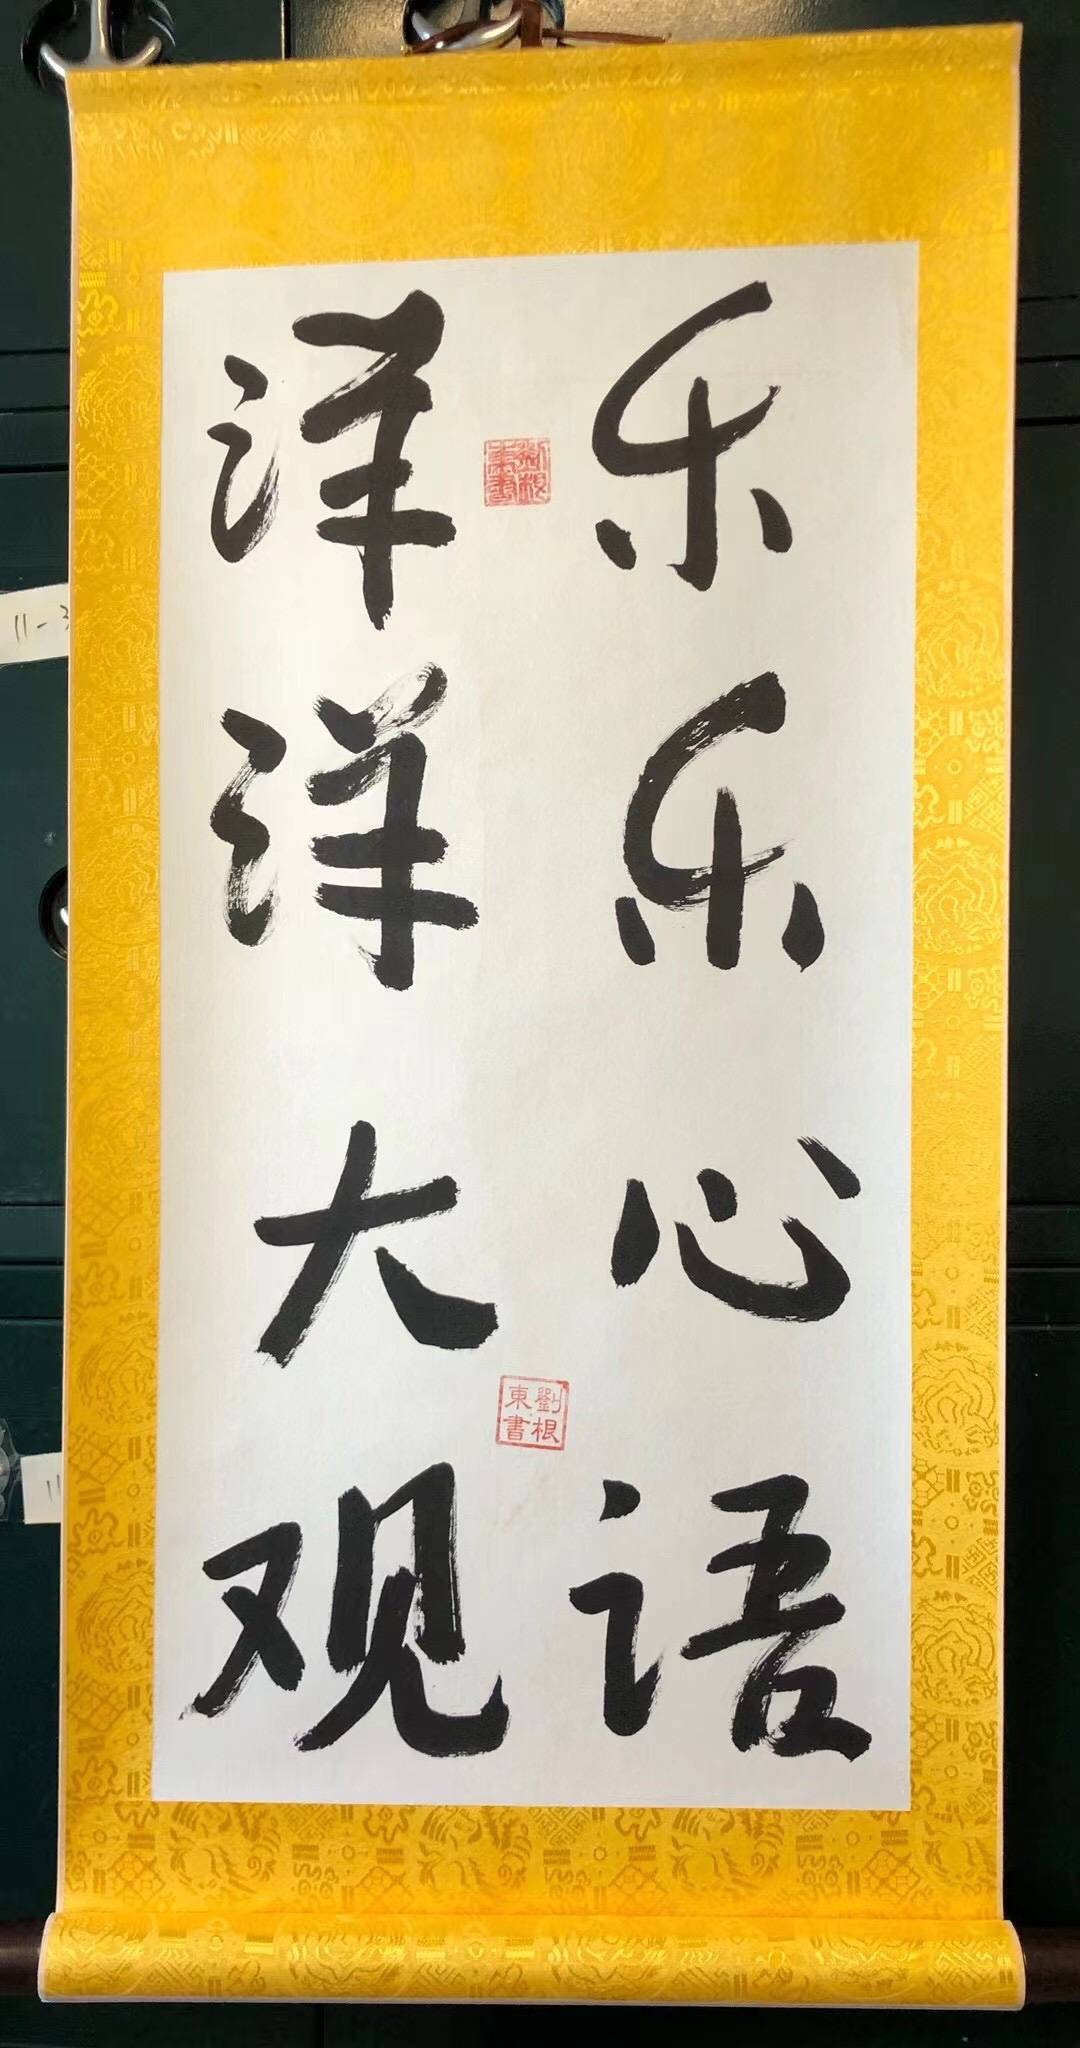 乐乐心语
洋洋大观
劉根東書
劉根東書
11-3
11